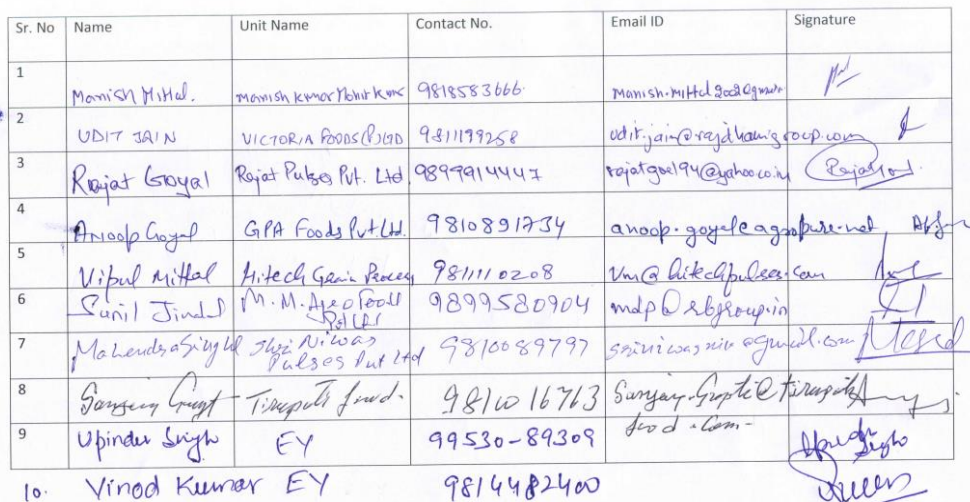 Sr. No Name Unit Name Contact No. Email ID Signature
1 Manish Mittal. Manish Kumar Mohit Kumar 9818583666.
2 UDIT JAIN VICTORIA FOODS (P) LTD 9811199258 udit.jain@rajdhanigroup.com
3 Rajat Goyal Rajat Pulses Pvt. Ltd. 9899914447 rajatgoel94@yahoo.co.in
4 Anoop Goyal GPA Foods Pvt Ltd. 9810891734 anoop.goyal@agropure.net
5 Vipul Mittal Hitech Grain Process 9811110208 vm@hitechpulses.com
6 Sunil Jindal M.M. Agro Foods Pvt Ltd 9899580904 mdp@rbgroup.in
7 Mahendra Singh Shri Niwas Pulses Put Ltd 9810089797
8 Tirupati food. 9810016763
food.com
9 Upinder Singh EY 99530-89309
10. Vinod Kumar EY 9814482400